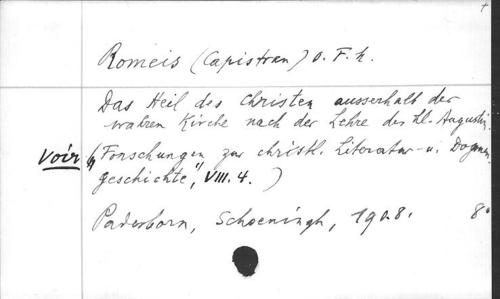 Romeis (Capistran) O. F. M.
Das Heil des Christen ausserhalb der
wahren Kirche nach der Lehre des hl. Augustin.
Voir („Forschungen zur christl. Literatur- u. Dogmen-
geschichte", VIII. 4. )
Paderborn, Schoeningh, 1908. 8°